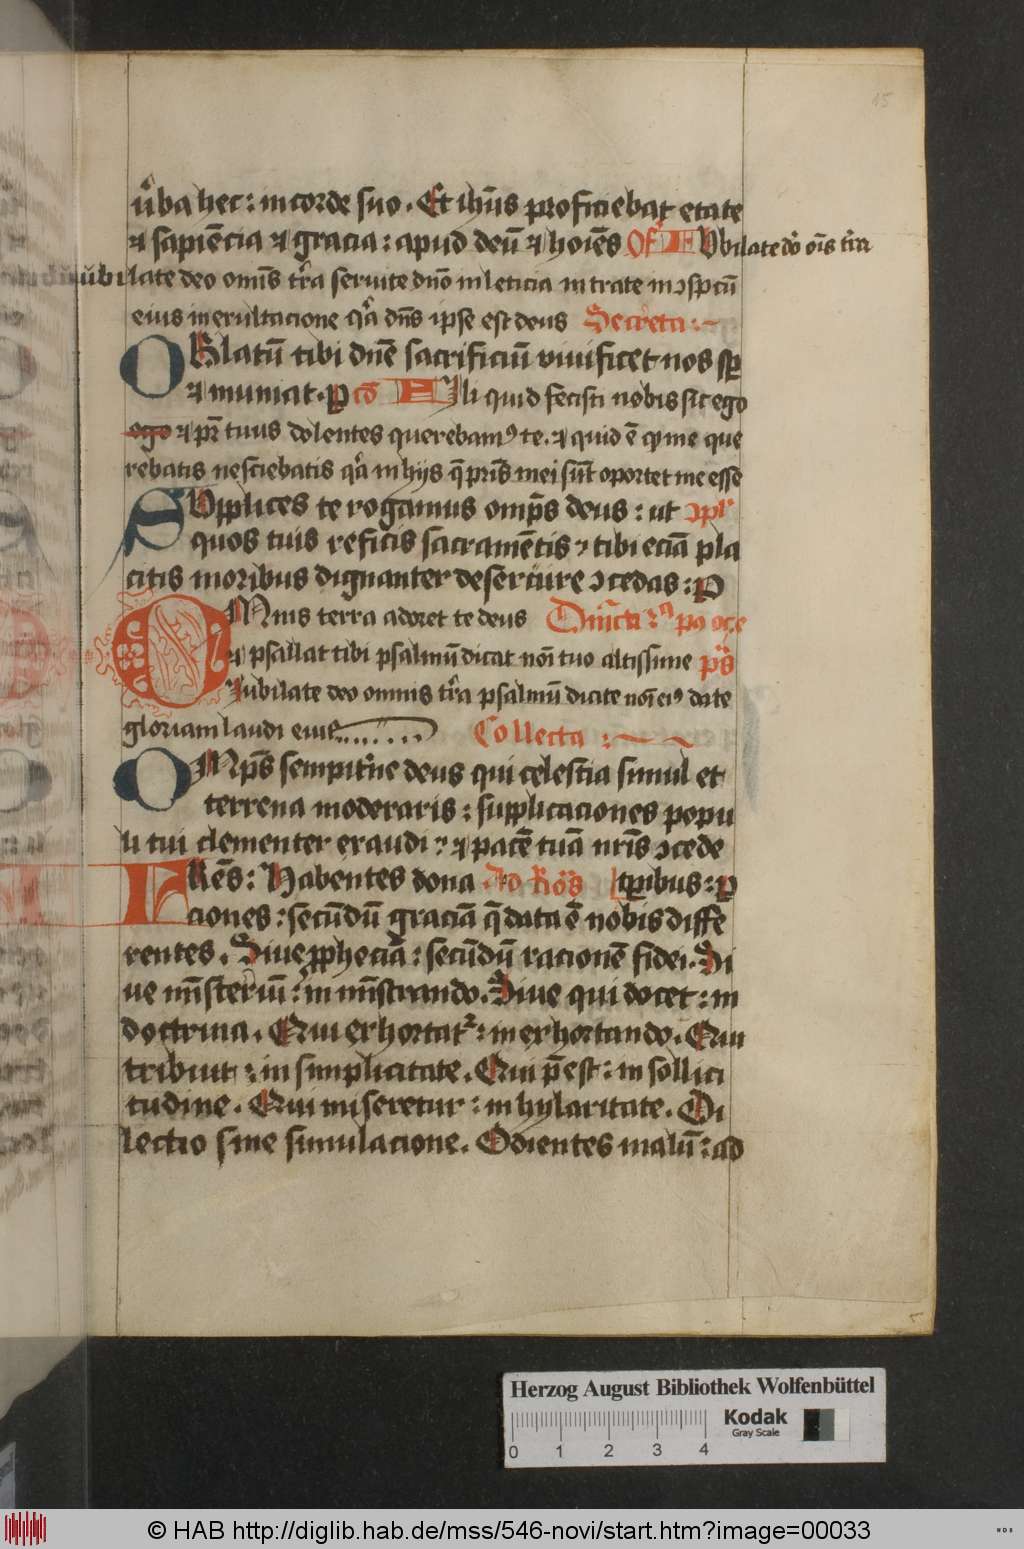 15
v̾ba hec : in corde suo . Et ih̅us proficiebat etate
⁊ sapie̅cia ⁊ gracia : apud deu̅ ⁊ hoi̅es Of̅ IVbilate do̅ oi̅s t̾ra
iubilate deo omi̅s t̾ra seruite dn̅o in leticia in trate in ↄspc̅u̅
eius in exultacione qͣ dn̅s ipse est deus Secreta :~
OBlatu̅ tibi dn̅e sacrificiu̅ viuificet nos sꝑ
⁊ muniat . P co̅ FIli quid fecisti nobis sic ego
ego ⁊ pr̅ tuus dolentes querebamꝰ te . ⁊ quid e̅ ꝙ me que
rebatis nesciebatis qͣ in hijs q̅ pr̅is mei su̅t oportet me esse
SVpplices te rogamus omp̅s deus : ut ↄpl̅
quos tuis reficis sacrame̅tis ⁊ tibi ecia̅ pla
citis moribus dignanter deseruire ↄcedas : P
OMnis terra adoret te deus Dn̅ica ii̅ᵃ po oce
⁊ psallat tibi psalmu̅ dicat noi̅ tuo altissime p̅s
Jubilate deo omnis t̾ra psalmu̅ dicite noi̅ eiꝰ date
gloriam laudi eius
Collecta :~ ~
OMp̅s sempit̾ne deus qui celestia simul et
terrena moderaris : supplicaciones popu
li tui clementer exaudi : ⁊ pace̅ tua̅ nr̅is ↄcede
FRe̅s : Habentes dona Ad Ro̅s t̅pribus : P
ciones : secu̅du̅ gracia̅ q̅ data e̅ nobis diffe
rentes . Siue ꝓphecia̅ : secu̅du̅ racione̅ fidei . Si
ue mi̅steriu̅ : in mi̅strando . Siue qui docet : in
doctrina . Qui exhortat᷑ : in exhortando . Qui
tribuit : in simplicitate . Qui p̅est : in sollici
tudine . Qui miseretur : in hylaritate . Di
lectio sine simulacione . Odientes malu̅ : ad
Herzog August Bibliothek Wolfenbüttel
Kodak
Gray Scale
0 1 2 3 4
© HAB http://diglib.hab.de/mss/546-novi/start.htm?image=00033